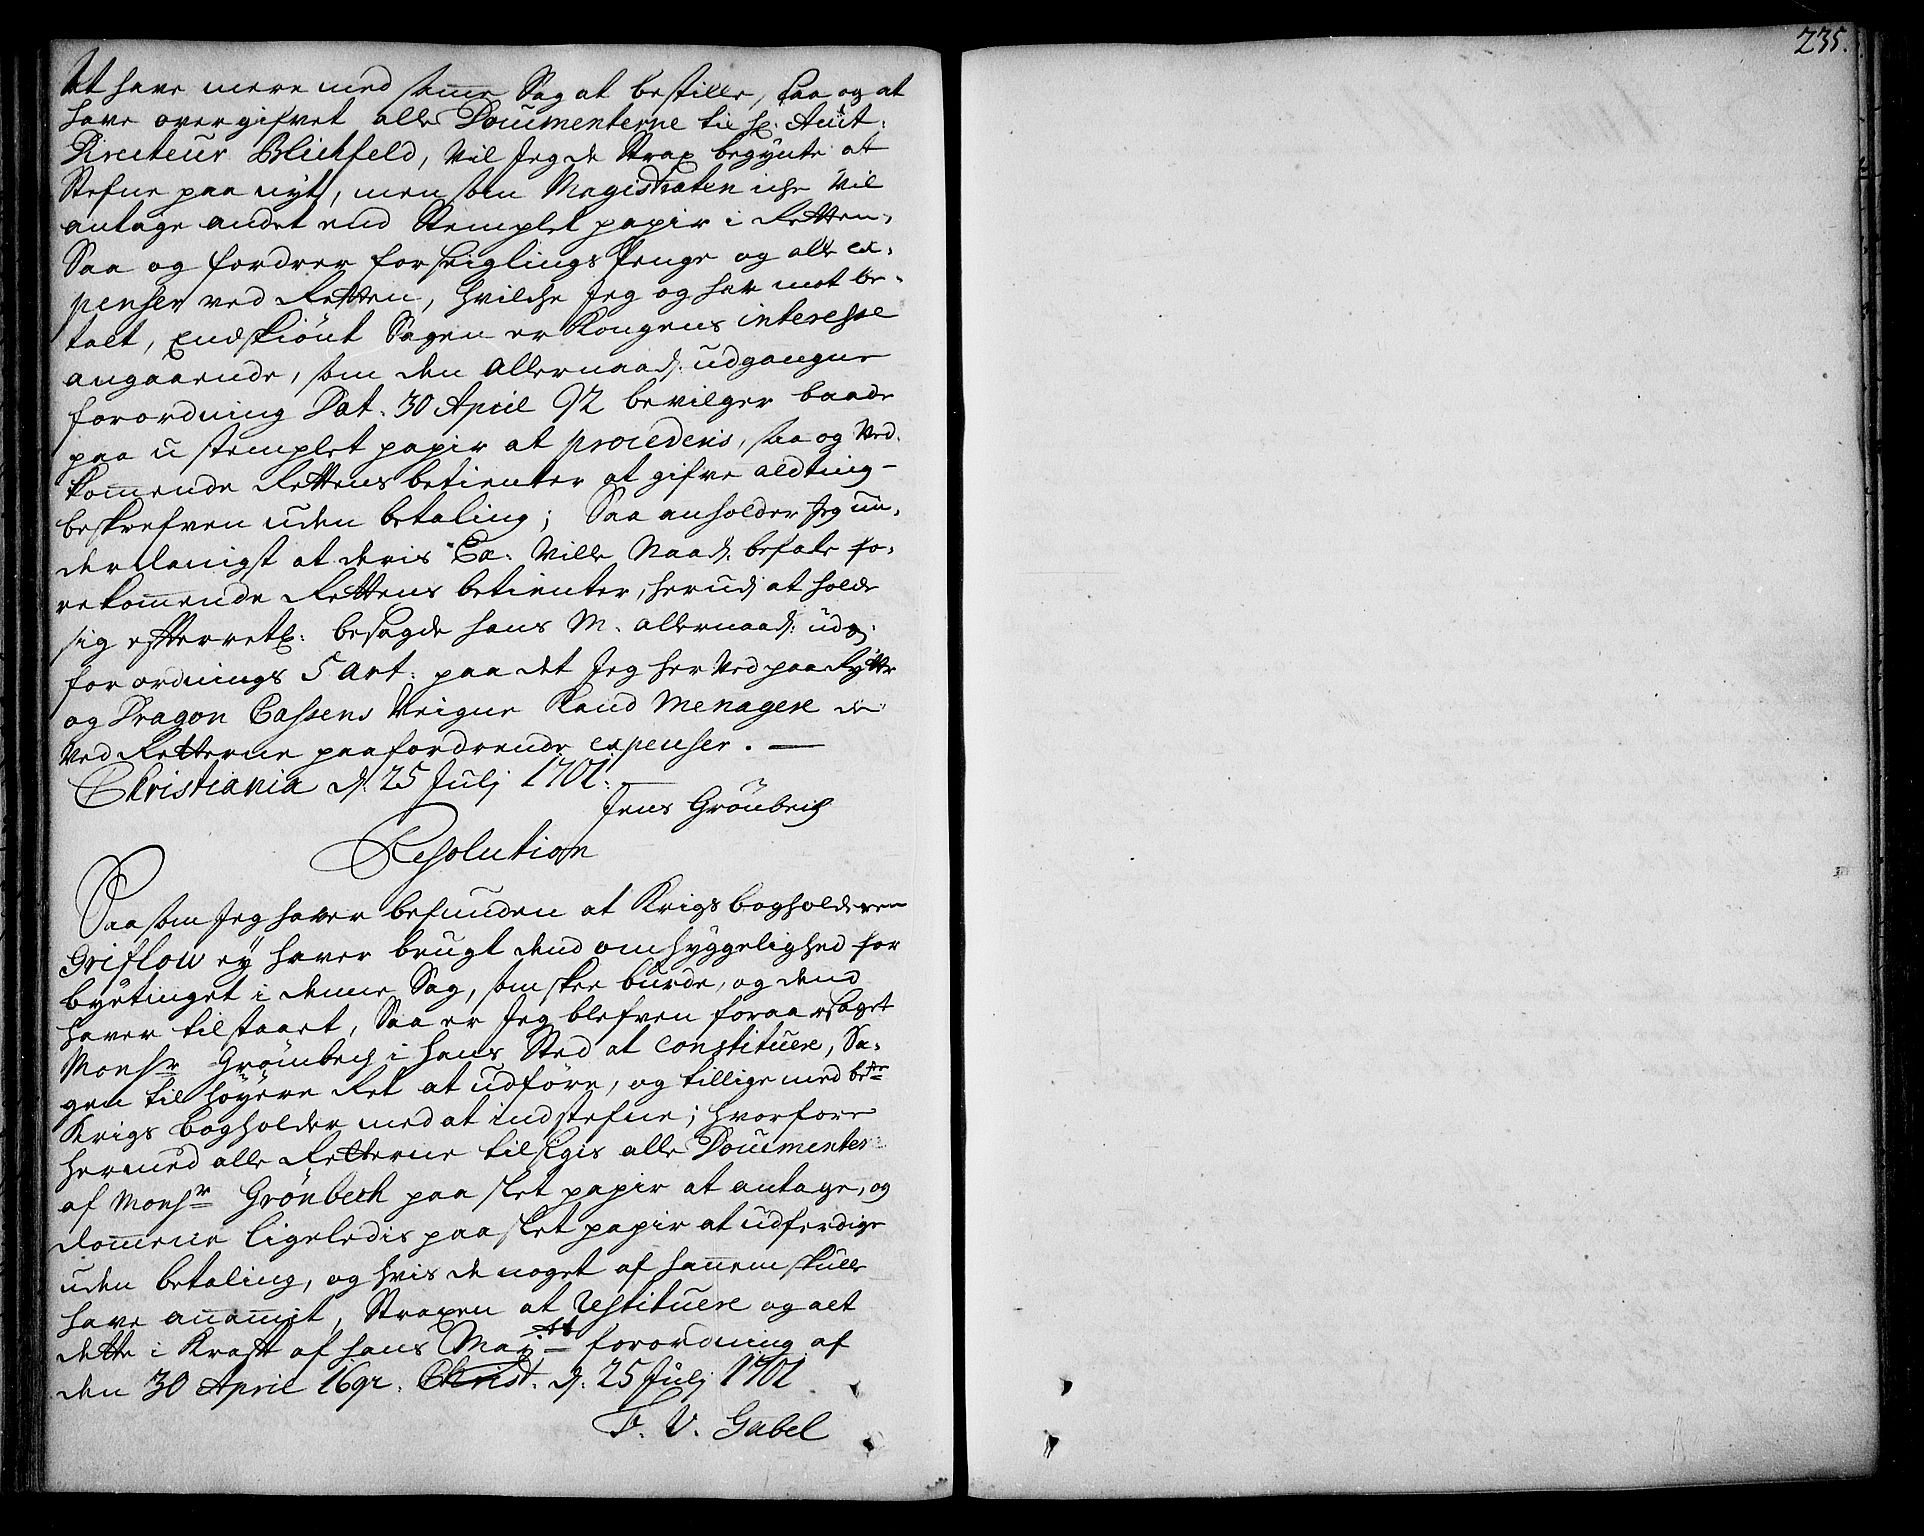 At have mere med samme Sag at bestille, saa og at
have overgifvet alle Documenterne til hr. Auct:
Directeur Blichfeld, vil Jeg da Strax begynte at
Stefne paa nyt, men som Magistraten iche vil
antage andet end Stemplet papir i Retten,
Saa og fordrer forseiglings Penge og alle ex-
penser ved Retten, hvilche Jeg og har mot be-
talt, Endskiönt Sagen er Kongens interesse
angaaende, som den Allernaad: udgangne
forordning Dat. 30 April 92 bevilger baade
paa ustemplet papir at procederis, saa og Ved-
kommende Rettens betienter at gifve alting
beskrefven uden betaling; Saa anholder Jeg un-
derdanigst at deris Ex: Ville Naad: befale fo-
rekommende Rettens betienter, herud: at holde
sig efterretl: besagde hans M. allernaad: udg:
forordnings 5 art: paa det Jeg her Ved paa Rytter
og Dragon Cassens Veigne Kand menagere de
Ved Retterne paafordrende expenser. —
Christiania d: 25 Julj 1701.
Jens Grönbech
Resolution
Saasom Jeg haver befunden at Krigsbogholderen
Griflow ey haver brugt dend omhyggelighed for
byetinget i denne Sag, som skee burde, og dend
haver tilstaaet, Saa er Jeg blefven foraarsaget
Monsr Grönbech i hans Sted at constituere, Sa-
gen til höyere Ret at udföre, og tillige med bete
Krigs bogholder med at indstefne; hvorfore
hermed alle Retterne tilsigis alle Documenter
af Monsr Grönbech paa slet papir at antage, og
dommene ligeledis paa slet papir at udferdige
uden betaling, og hvis de noget af hannem skulle
have annammit, Straxen at restituere og alt
dette i Kraft af hans Mayts forordning af
den 30 April 1692. Christ. d: 25 Julj 1701
F. V. Gabel
235.